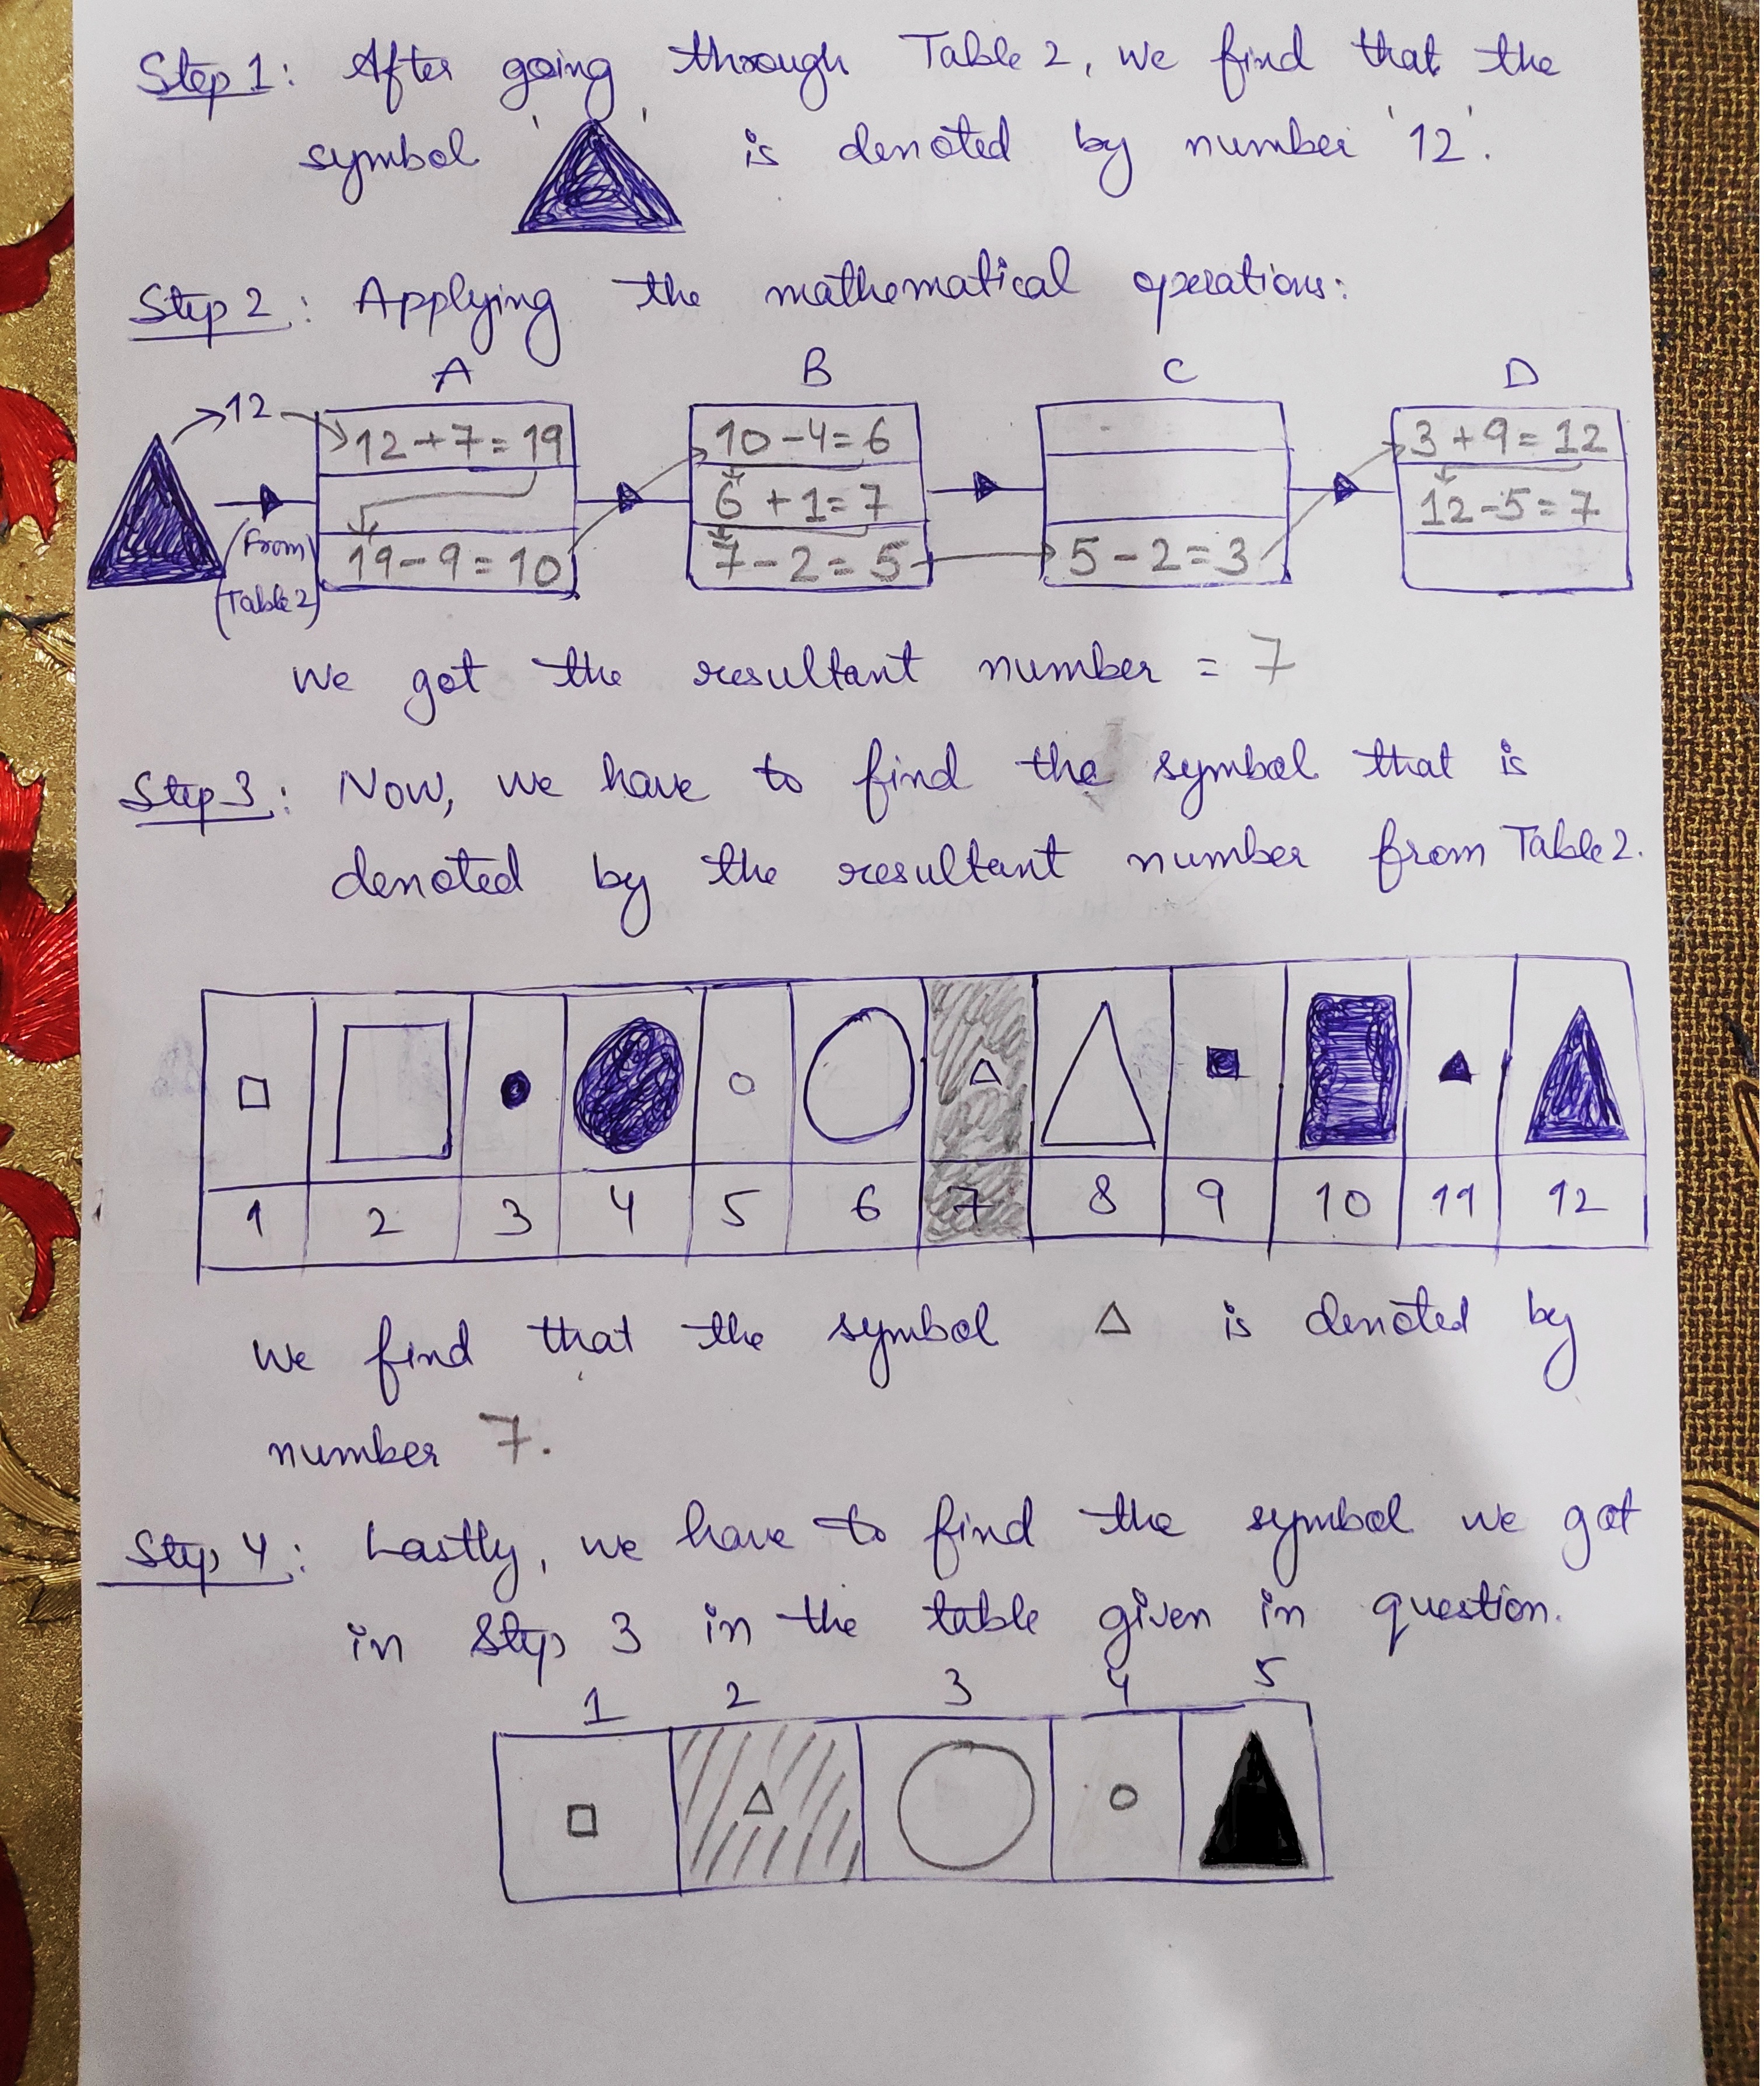 Step 1: After going through Table 2, we find that the
symbol ' ' is denoted by number '12'.
Step 2: Applying the mathematical operations:
A B C D
12
12+7=19
19-9=10
10-4=6
6+1=7
7-2=5
5-2=3
3+9=12
12-5=7
(From
Table 2)
We got the resultant number = 7
Step 3: Now, we have to find the symbol that is
denoted by the resultant number from Table 2.
1 2 3 4 5 6 7 8 9 10 11 12
We find that the symbol △ is denoted by
number 7.
Step 4: Lastly, we have to find the symbol we got
in Step 3 in the table given in question.
1 2 3 4 5